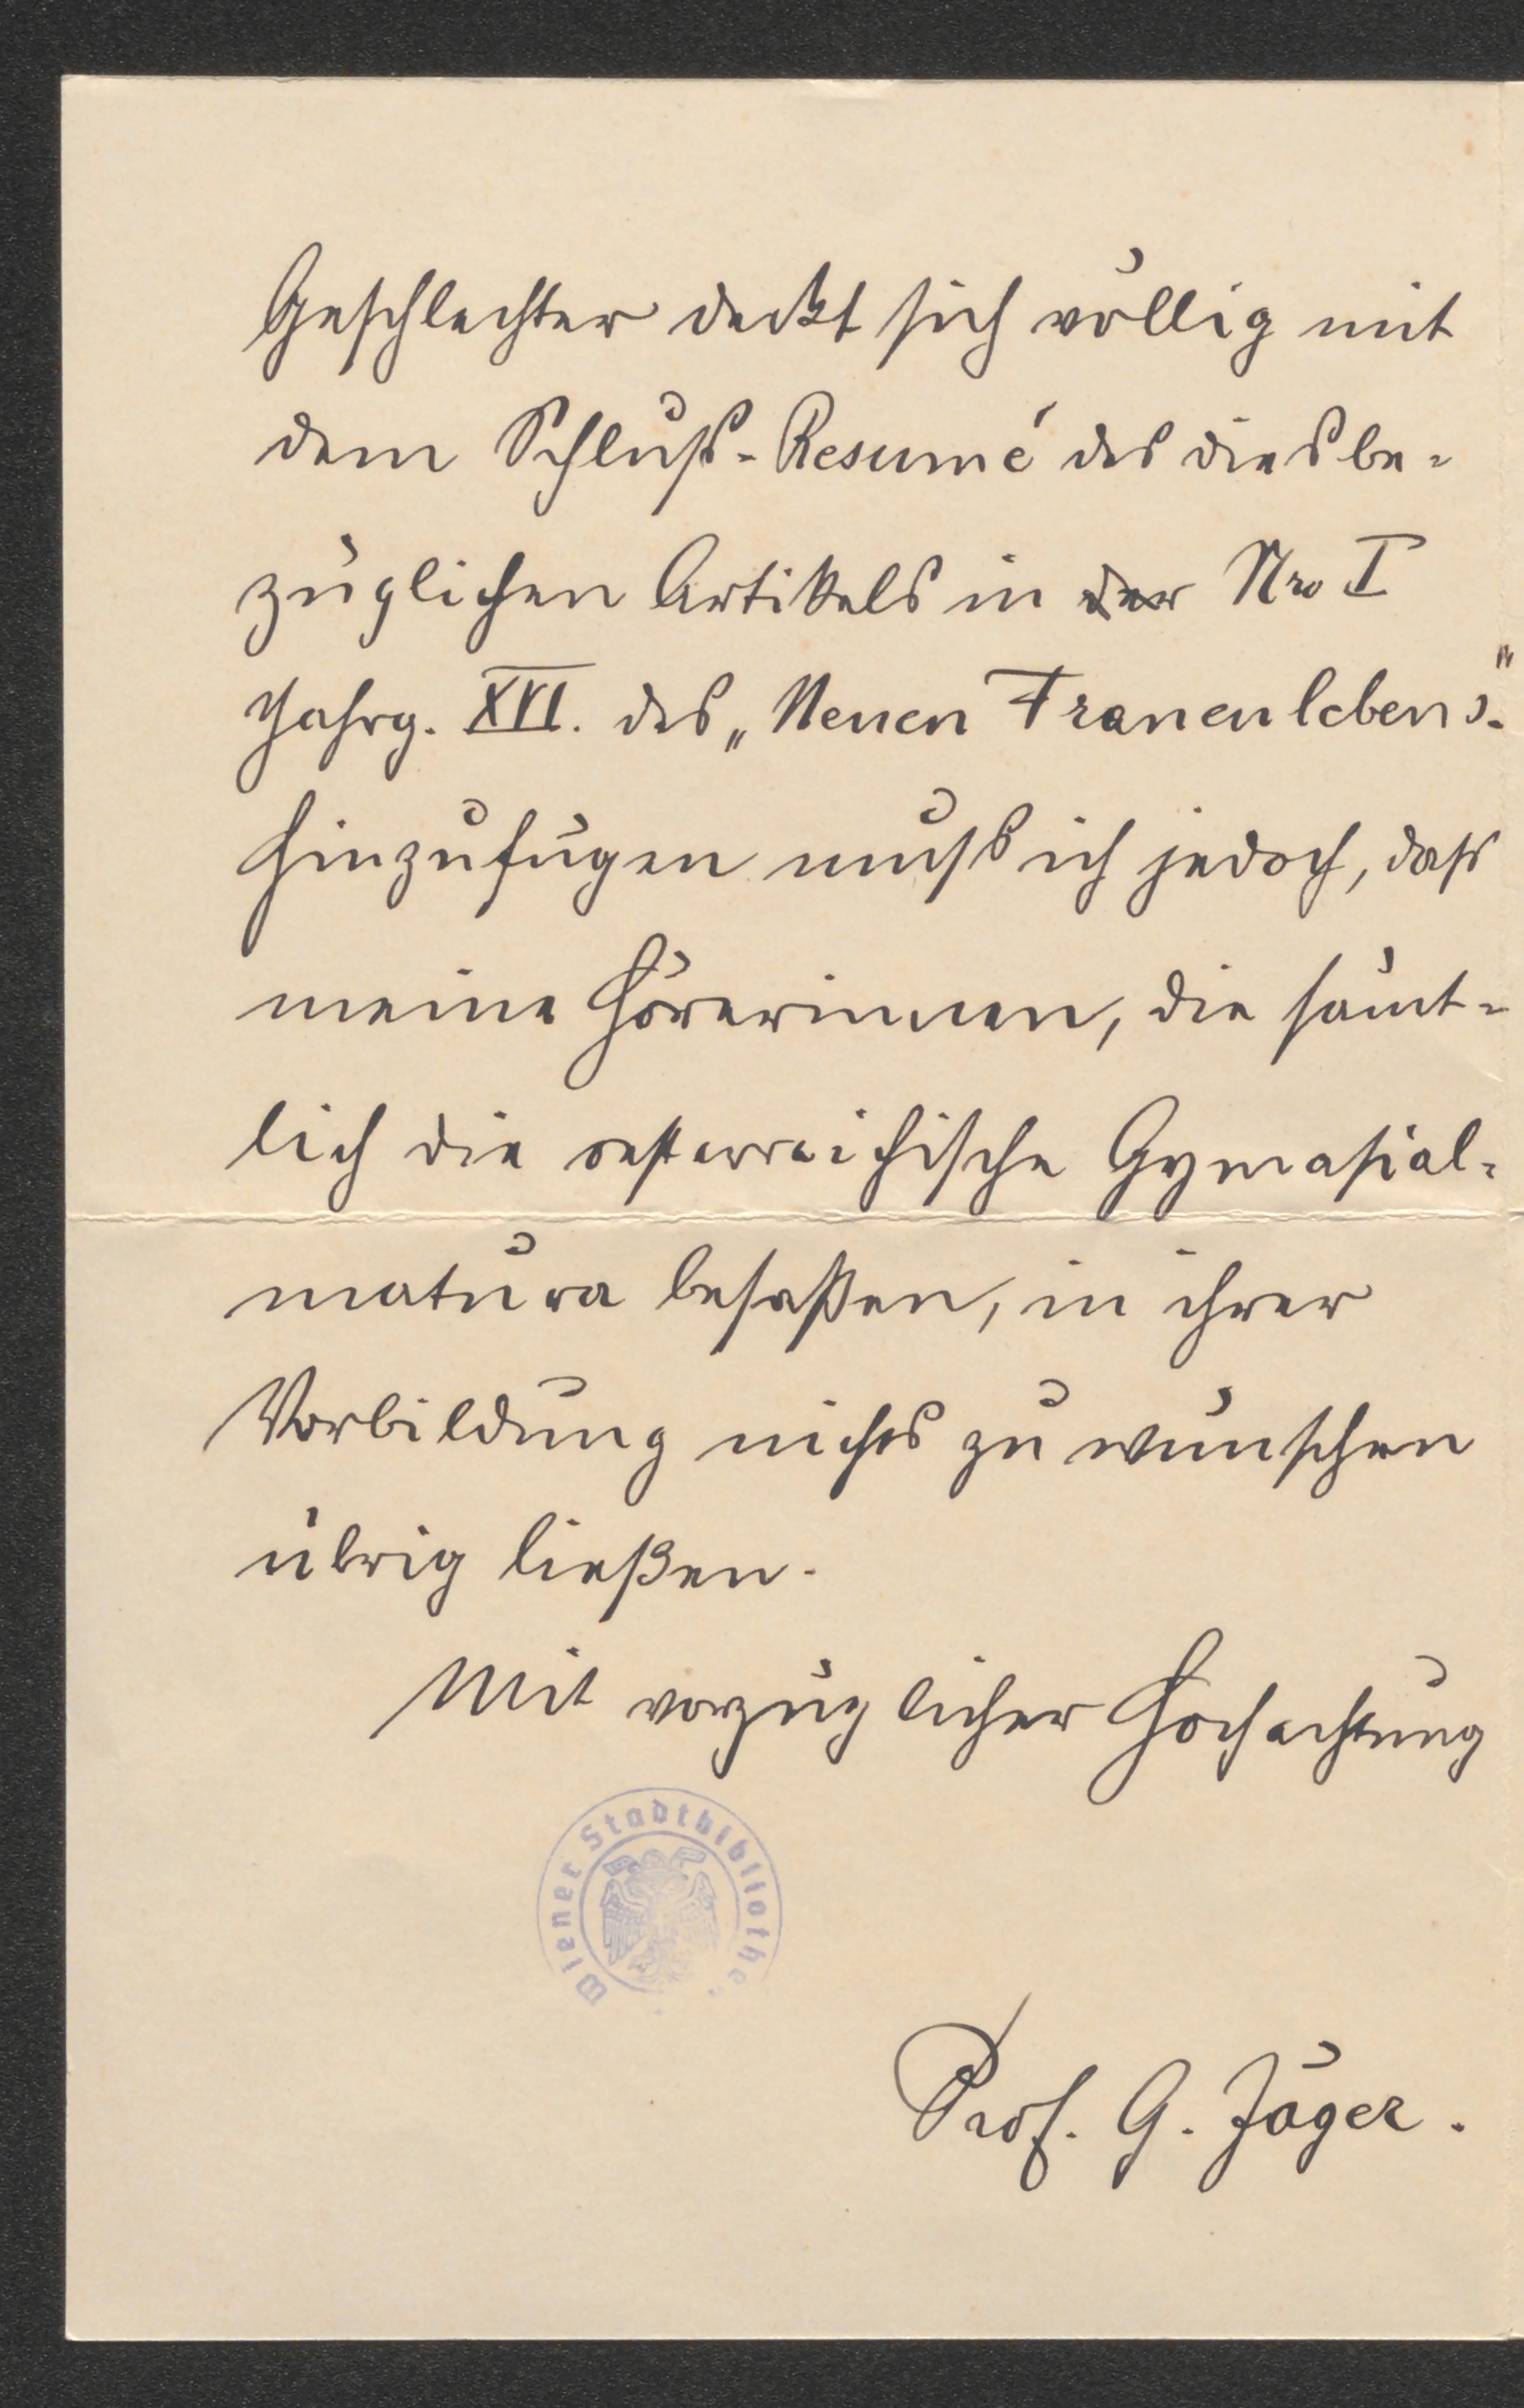 Geschlechter deckt sich völlig mit
dem Schluss-Resumé des diesbe-
züglichen Artikels in der Nro I
Jahrg. XVI. des „Neuen Frauenlebens“.
Hinzufügen muss ich jedoch, dass
meine Hörerinnen, die sämt-
lich die oesterreichische Gymnasial-
matura besaßen, in ihrer
Vorbildung nichts zu wünschen
übrig ließen.
Mit vorzüglicher Hochachtung
Wiener Stadtbibliothek
Prof. G. Jäger.